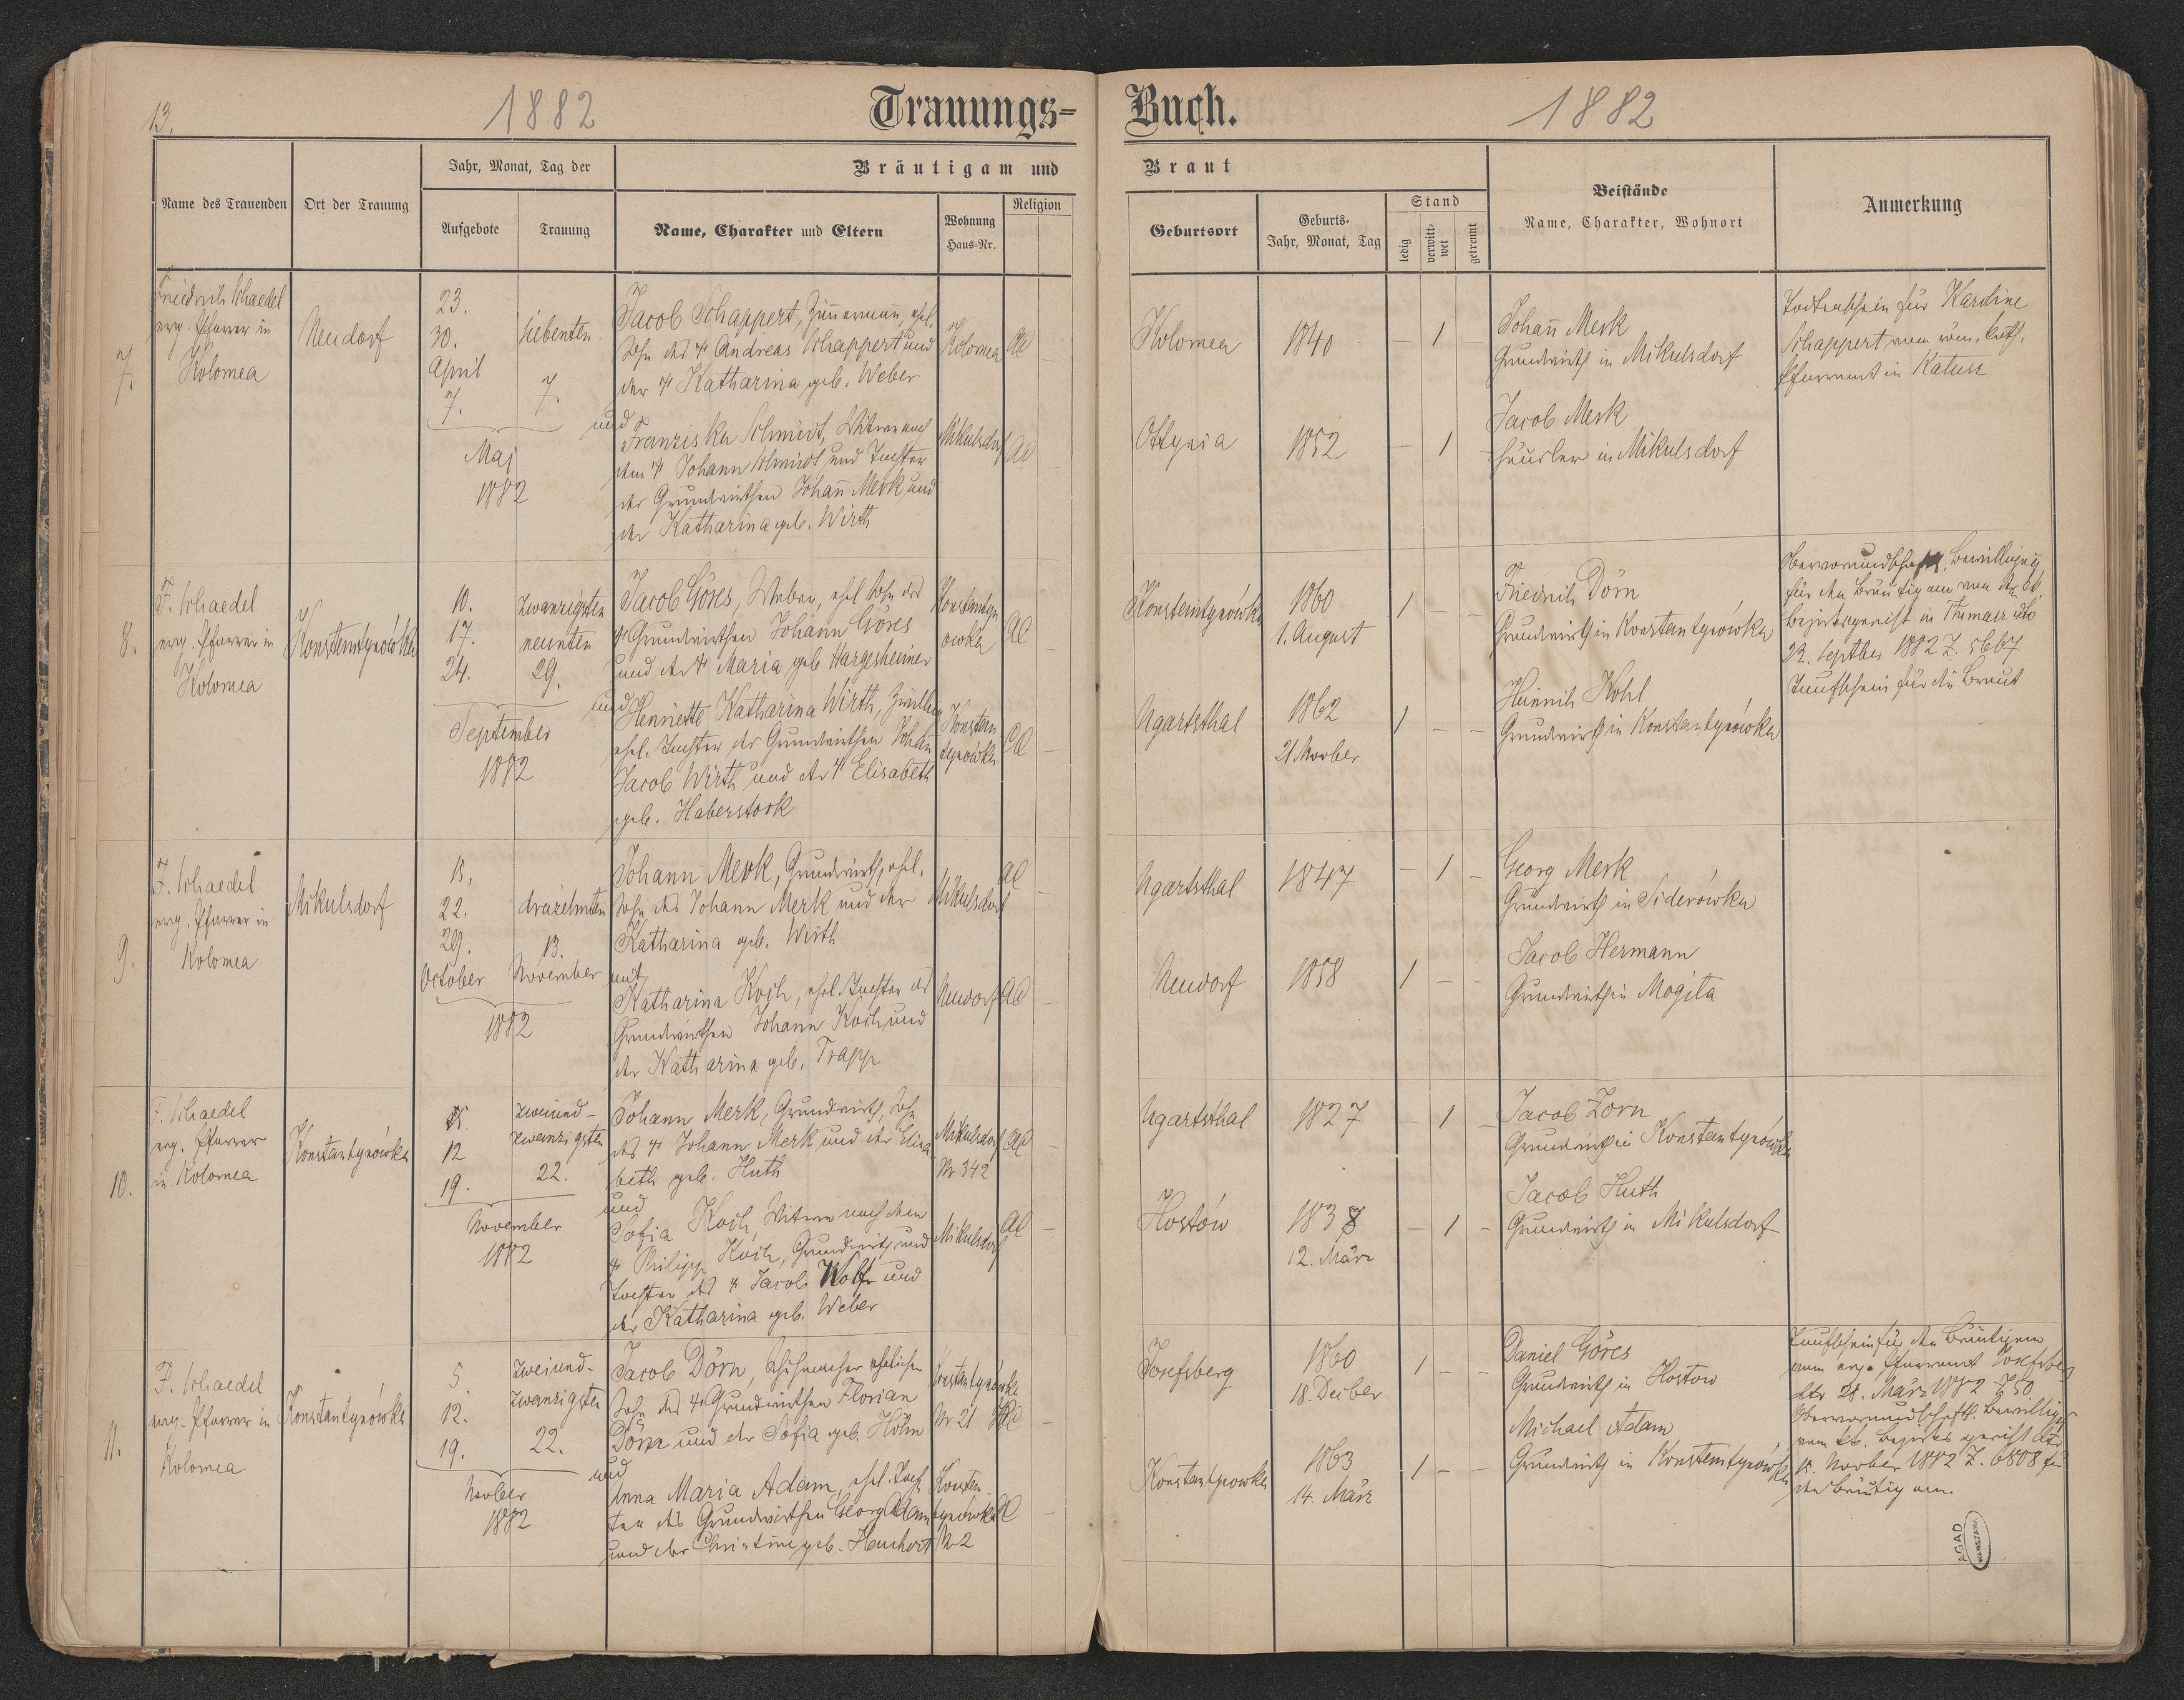 13.
1882
Trauungs-
Buch.
1882
Name des Trauenden
Ort der Trauung
Jahr, Monat, Tag der
Aufgebote
Trauung
Bräutigam und
Name, Charakter und Eltern
Wohnung
Haus-Nr.
Religion
Braut
Geburtsort
Geburts-
Jahr, Monat, Tag
Stand
ledig
verwitt-
wet
getrennt
Beistände
Name, Charakter, Wohnort
Anmerkung
7.
Friedrich Schaedel
evg. Pfarrer in
Kolomea
Neudorf
23.
30.
April
7.
Maj
1882
siebenten
7.
Jacob Schappert, Zim̄ermann, ehel.
Sohn des † Andreas Schappert und
der † Katharina geb. Weber
und
Franziska Schmidt, Witwe nach
dem † Johann Schmidt und Tochter
des Grundwirthen Johan̄ Merk und
der Katharina geb. Wirth
Kolomea
Mikulsdorf
AC
AC
Kolomea
1840
– 1 –
Ottynia
1852
– 1 –
Johan̄ Merk
Grundwirth in Mikulsdorf
Jacob Merk
Häusler in Mikulsdorf
Todtenschein für Karoline
Schappert vom röm. kath.
Pfarramt in Kalusz
8.
F. Schaedel
evg. Pfarrer in
Kolomea
Konstantynówka
10.
17.
24.
September
1882
zwanzigsten
neunten
29.
Jacob Göres, Weber, ehel Sohn des
† Grundwirthen Johann Göres
und der † Maria geb Hargesheimer
und
Henriette Katharina Wirth,
ehel. Tochter des Grundwirthen Johan̄
Jacob Wirth und der † Elisabeth
geb. Haberstock
Konstantyn
owka
Konstan
tynówka
AC
AC
Konstantynówka
1860
1. August
1 – –
Ugartsthal
1862
21 Novber
1 – –
Friedrich Dörn
Grundwirth in Konstantynówka
Heinrich Kohl
Grundwirth in Konstantynówka
Obervormundschaftl. Bewilligung
für den Bräutigam von der
Bezirksgericht in Tlumacz dto
22. Septber 1882 Z. 5667
Taufschein für die Braut
9.
F. Schaedel
evg. Pfarrer in
Kolomea
Mikulsdorf
15.
22.
29.
October
1882
dreizehnten
13.
November
Johann Merk, Grundwirth, ehel.
Sohn des Johann Merk und der
Katharina geb. Wirth
mit
Katharina Koch, ehel. Tochter des
Grundwirthen Johann Koch und
der Katharina geb. Trapp
Mikulsdorf
Neudorf
AC
AC
Ugartsthal
1847
– 1 –
Neudorf
1858
1 – –
Georg Merk
Grundwirth in Siderówka
Jacob Hermann
Grundwirth in Mogiła
10.
F. Schaedel
evg. Pfarrer
in Kolomea
Konstantynówka
5.
12
19.
November
1882
zweiund-
zwanzigsten
22.
Johann Merk, Grundwirth, Sohn
des † Johann Merk und der Elisa
beth geb. Huth
und
Sofia Koch, Witwe nach dem
† Philipp Koch, Grundwirth und
Tochter des † Jacob Wolf und
der Katharina geb. Weber
Mikulsdorf
Nr 342
Mikulsdorf
AC
AC
Ugartsthal
1827
– 1 –
Hostów
1838
12. März
– 1 –
Jacob Zorn
Grundwirth in Konstantynówka
Jacob Huth
Grundwirth in Mikulsdorf
11.
F. Schaedel
evg. Pfarrer in
Kolomea
Konstantynówka
5
12.
19.
Novber
1882
zweiund-
zwanzigsten
22.
Jacob Dörn, Schuhmacher ehelicher
Sohn des † Grundwirthen Florian
Dörn und der Sofia geb. Höhn
und
Anna Maria Adam, ehel. Toch
ter des Grundwirthen Georg Adam
und der Christine geb.
Konstantynówka
Nr 21
Konstan-
tynówka
Nr 2
AC
AC
Josefsberg
1860
18. Decber
1 – –
Konstantynowka
1863
14. März
1 – –
Daniel Göres
Grundwirth in Hostow
Michael Adam
Grundwirth in Konstantynówka
Taufschein für den Bräutigam
vom evg. Pfarramt Josefsberg
dto 28. März 1882
Obervormundschaftl. Bewilligg
vom kk. Bezirksgericht dto
15. Novber 1882 Z. 6808 für
den Bräutigam.
AGAD
WARSZAWA